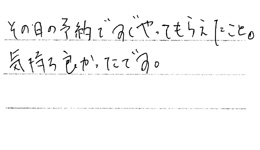 その日の予約ですぐやってもらえたこと。
気持ち良かったです。